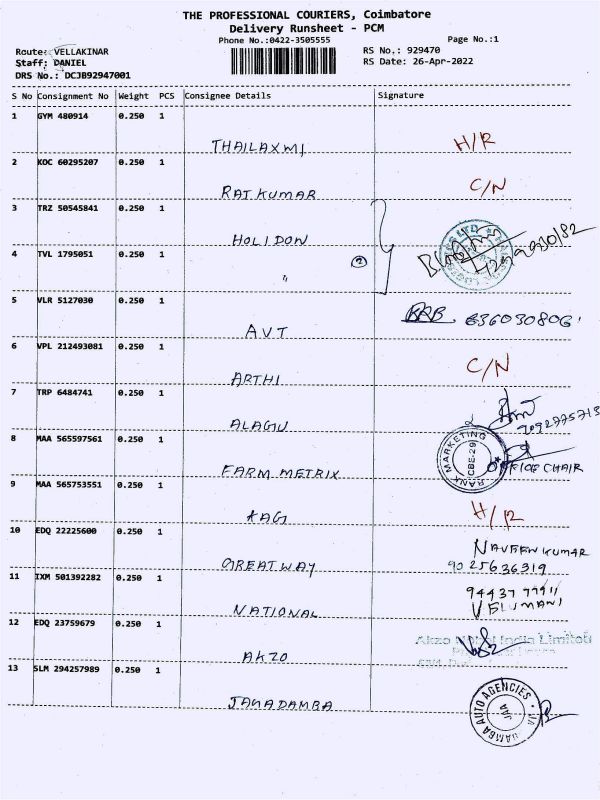 THE PROFESSIONAL COURIERS, Coimbatore
Delivery Runsheet - PCM
Phone No.:0422-3505555 Page No.:1
Route: VELLAKINAR RS No.: 929470
Staff: DANIEL RS Date: 26-Apr-2022
DRS No.: DCJB92947001
S No Consignment No Weight PCS Consignee Details Signature
1 GYM 480914 0.250 1
THAILAXMI H/R
2 KOC 60295207 0.250 1
RAJKUMAR C/N
3 TRZ 50545841 0.250 1
HOLIDON
4 TVL 1795051 0.250 1
"
5 VLR 5127030 0.250 1
AVT
6 VPL 212493081 0.250 1
ARTHI C/N
7 TRP 6484741 0.250 1
ALAGU
8 MAA 565597561 0.250 1
RANK MARKETING
CBE-29
FARM METRIX OFFICE CHAIR
9 MAA 565753551 0.250 1
KAG H/R
10 EDQ 22225600 0.250 1
NAVEEN KUMAR
GREATWAY 9025636319
11 IXM 501392282 0.250 1
NATIONAL VELUMANI
12 EDQ 23759679 0.250 1
Akzo Nobel India Limited
AKZO
13 SLM 294257989 0.250 1
JAGADAMBA
JAGADAMBA AUTO AGENCIES
JAA